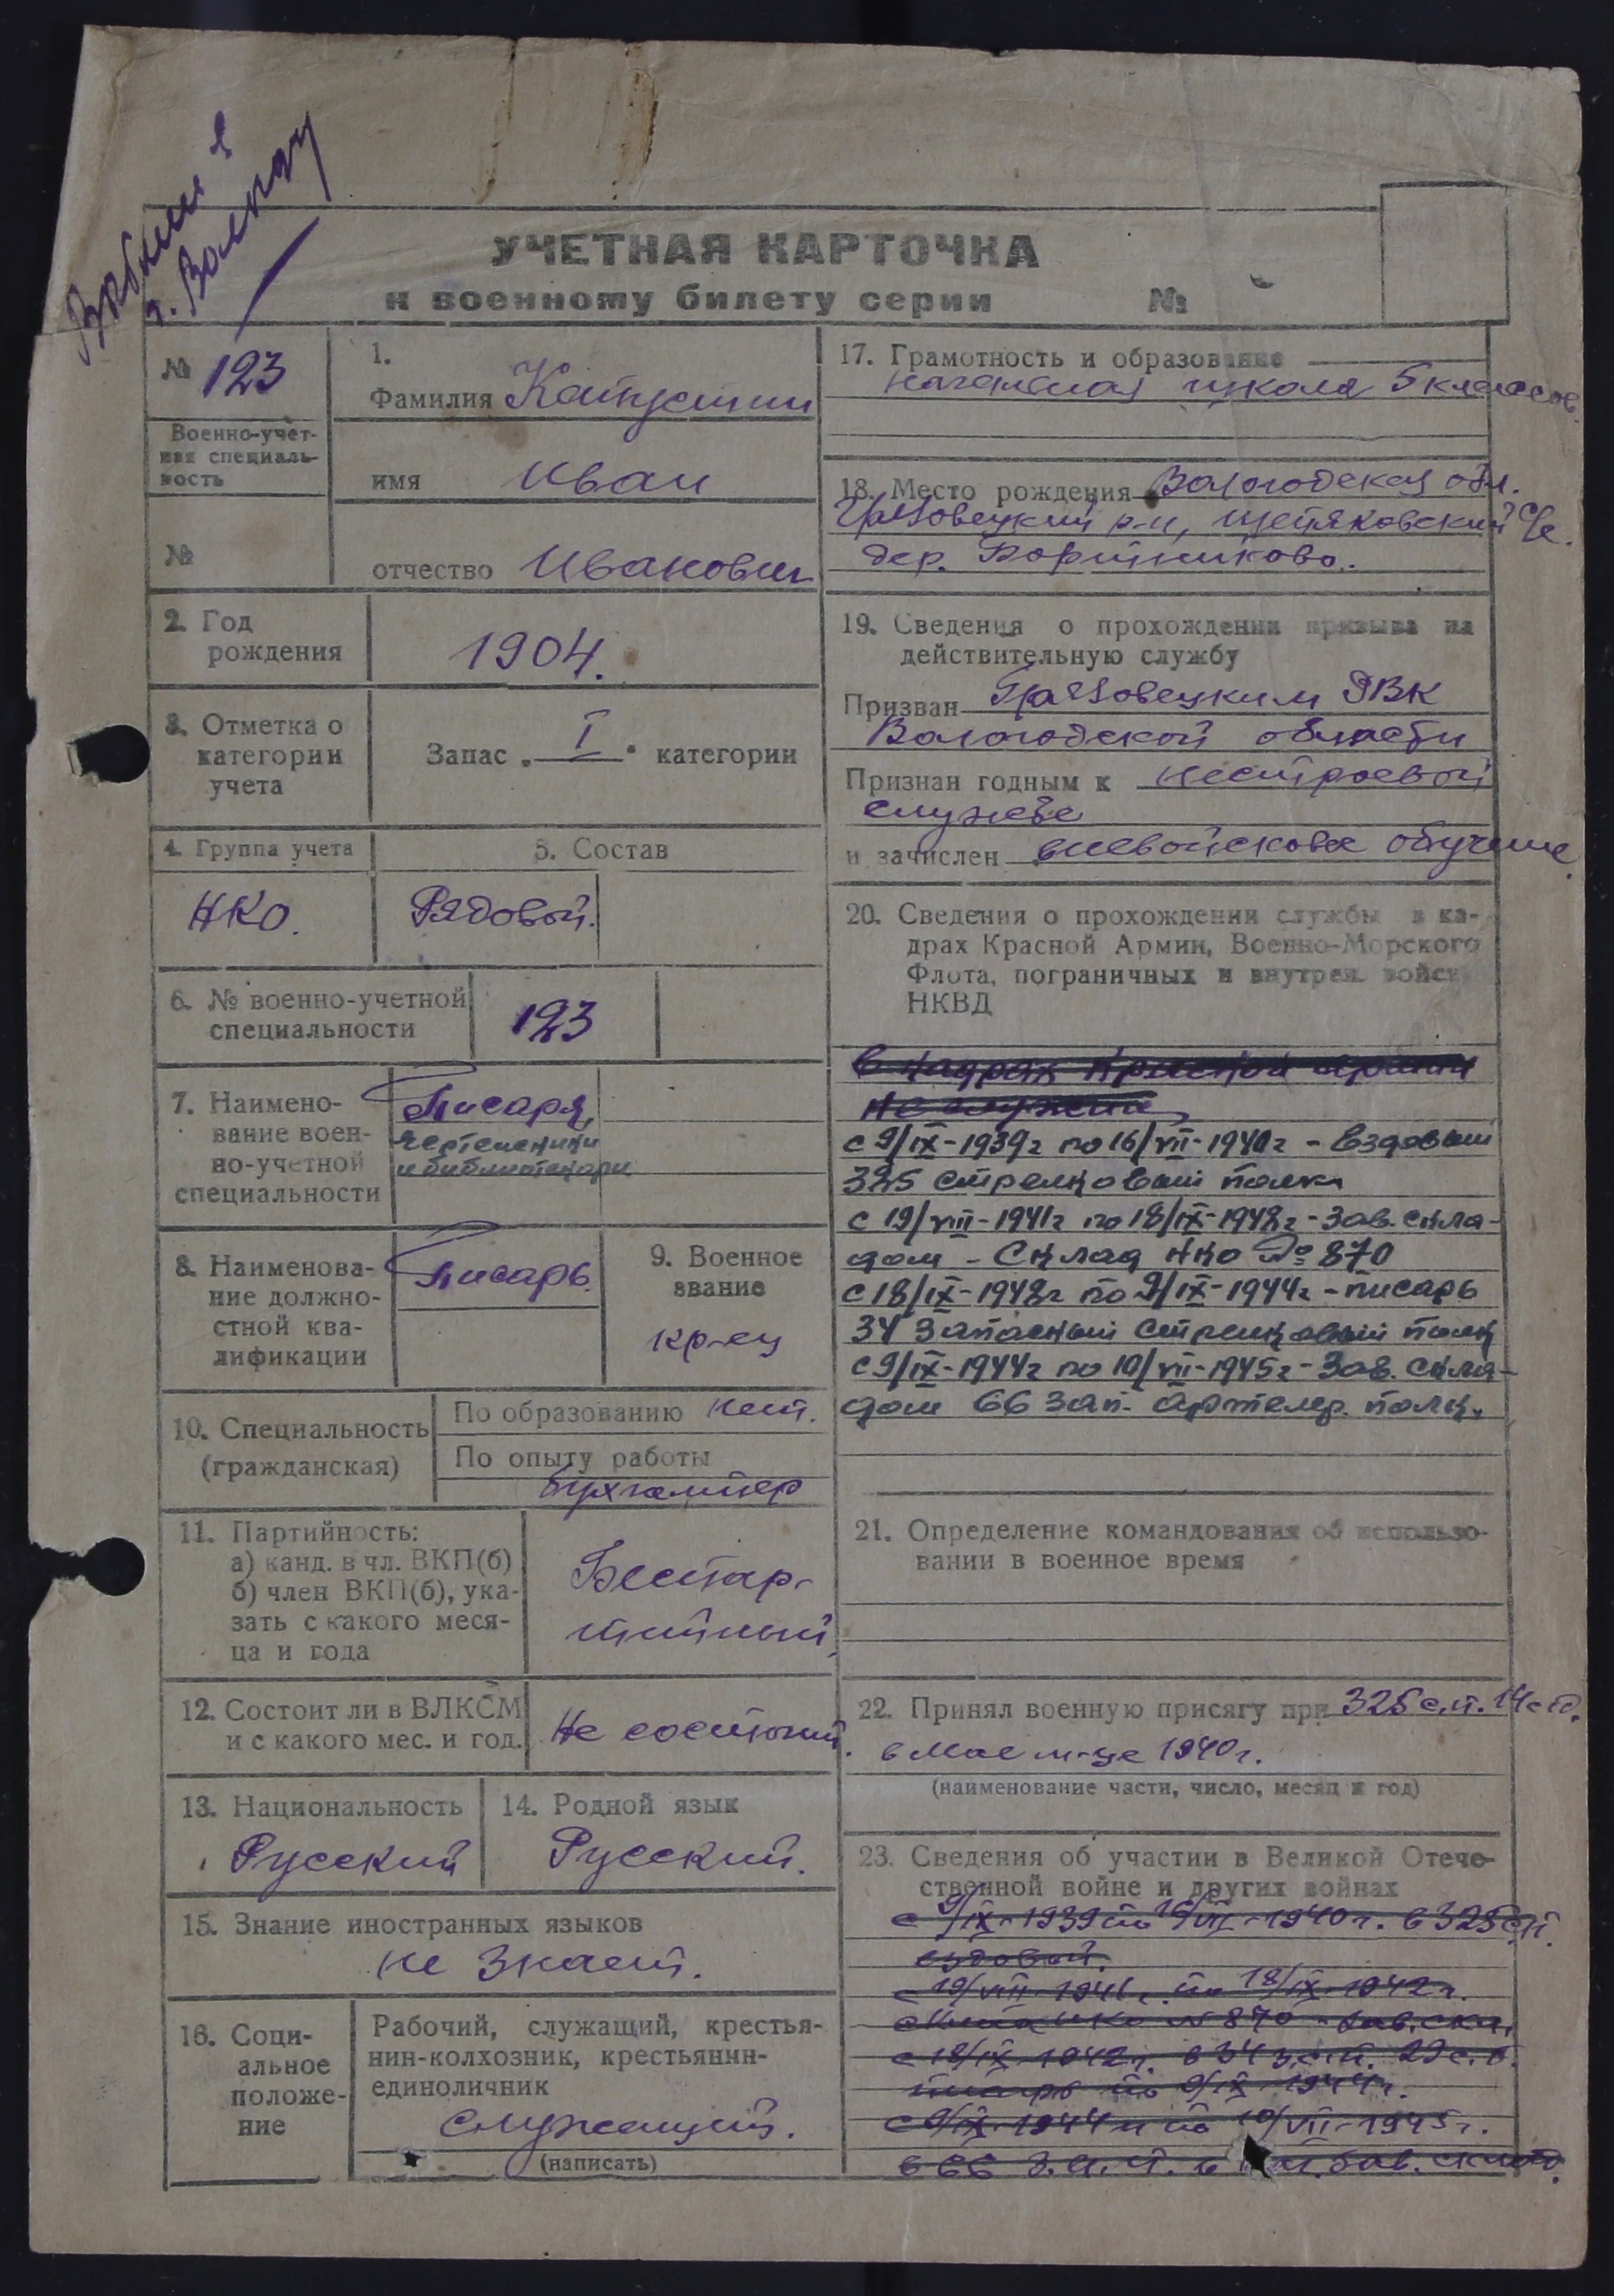 г. Вологду
УЧЕТНАЯ КАРТОЧКА
к военному билету серии №
№ 123
Военно-учет-
ная специаль-
ность
№
1.
Фамилия Капустин
имя Иван
отчество Иванович
2. Год
рождения
1904.
3. Отметка о
категории
учета
Запас „ I “ категории
4. Группа учета
НКО.
5. Состав
Рядовой.
6. № военно-учетной
специальности
123
7. Наимено-
вание воен-
но-учетной
специальности
Писаря,
чертежники
и библиотекари
8. Наименова-
ние должно-
стной ква-
лификации
Писарь.
9. Военное
звание
кр-ец
10. Специальность
(гражданская)
По образованию нет.
По опыту работы
бухгалтер
11. Партийность:
а) канд. в чл. ВКП(б)
б) член ВКП(б), ука-
зать с какого меся-
ца и года
Беспар-
тийный
12. Состоит ли в ВЛКСМ
и с какого мес. и год.
Не состоит.
13. Национальность
Русский
14. Родной язык
Русский.
15. Знание иностранных языков
не знает.
16. Соци-
альное
положе-
ние
Рабочий, служащий, крестья-
нин-колхозник, крестьянин-
единоличник
Служащий.
(написать)
17. Грамотность и образование
начальная школа 5 классов
18. Место рождения Вологодская обл.
Грязовецкий р-н, с/с.
дер.
19. Сведения о прохождении призыва на
действительную службу
Призван Грязовецким РВК
Вологодской области
Признан годным к нестроевой
службе
и зачислен вневойсковое обучение.
20. Сведения о прохождении службы в ка-
драх Красной Армии, Военно-Морского
Флота, пограничных и внутрен. войск
НКВД
в кадрах Красной армии
не служил
с 9/IX-1939г по 16/VII-1940г - Ездовый
325 стрелковый полк
с 19/VIII-1941г по 18/IX-1942г - Зав. скла-
дом - Склад НКО № 870
с 18/IX-1942г по 9/IX-1944г - писарь
34 Запасный стрелковый полк
с 9/IX-1944г по 10/VII-1945г - Зав. скла-
дом 66 зап. Артелер. полк.
21. Определение командования об использо-
вании в военное время
22. Принял военную присягу при 325 с.п. 14 с.д.
в Мае м-це 1940г.
(наименование части, число, месяц и год)
23. Сведения об участии в Великой Отече-
ственной войне и других войнах
с 9/IX-1939 по 16/VII-1940г. в 325 с.п.
ездовой.
с 19/VIII 1941г. по 18/IX-1942г.
склад НКО № 870 - зав. скл.
с 18/IX-1942г. в 34 з.с.п. 29 с.д.
писарь по 9/IX-1944г.
с 9/IX-1944г по 10/VII-1945г.
в 66 з.а.п. зав. склад.